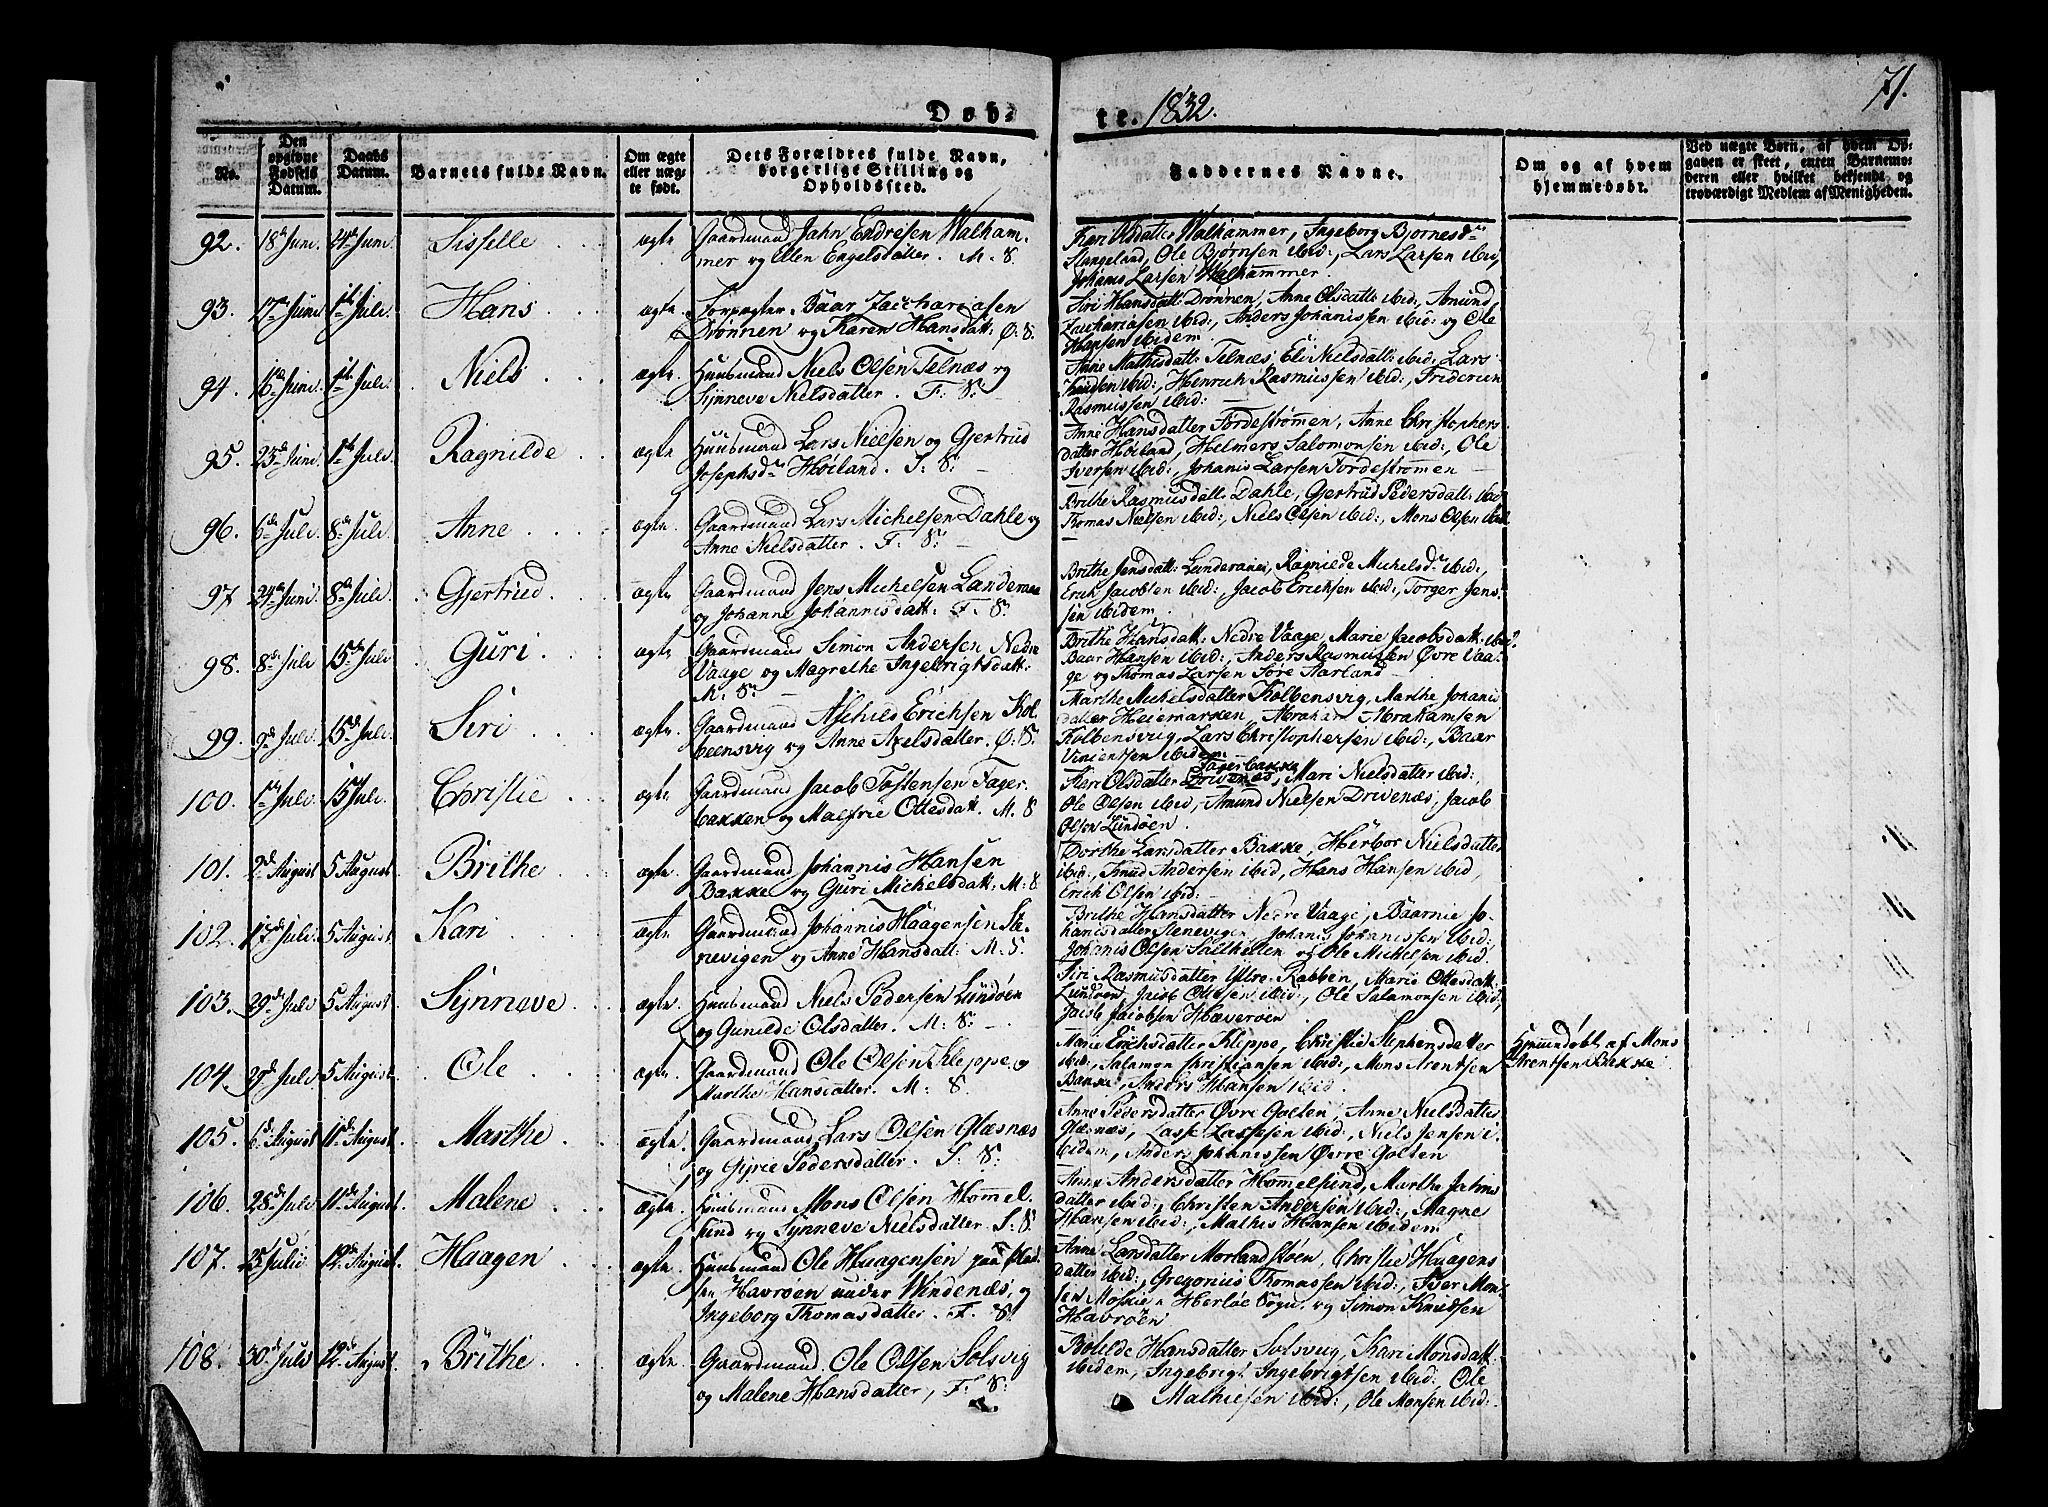 Døb-
te. 1832.
71.
No.
Den opgivne Fødsels Datum.
Daabs Datum.
Barnets fulde Navn.
Om ægte eller uægte født.
Dets Forældres fulde Navn, borgerlige Stilling og Opholdssted.
Faddernes Navne.
Om og af hvem hjemmedøbt.
Ved uægte Børn, af hvem Opgaven er skeet, enten Barnemoderen eller hvilket bekjendt og troværdigt Medlem af Menigheden.
92. 18de Juni. 24de Juni. Sisselle ægte Gaardmand Jahn Endresen Walham-
mer og Elen Engelsdatter. M: S.
Kari Olsdatter Walhammer, Ingeborg Bjørnesdr
Slangeland, Ole Bjørnsen ibid:, Lars Larsen ibid,
Johanis Larsen Walhammer.
93. 17de Juni 1ste Juli. Hans ægte Forpagter Baar Zachariasen
Drønnen og Karen Hansdatt: Ø: S.
Siri Hansdatt: Drønnen, Anne Olsdatt: ibid:, Amund
Zachariasen ibid:, Anders Johanissen ibid: og Ole
Hansen ibidem
94. 16de Juni 1ste Juli. Niels ægte. Huusmand Niels Olsen Telnæs og
Synneve Nielsdatter. F: S:
Anne Mathisdatt: Telnæs, Eli Nielsdatt: ibid: Lars
Knudsen ibid:, Henrich Rasmussen ibid:, Friderich
Rasmussen ibid:
95. 23de Juni. 1ste Juli. Ragnilde ægte Huusmand Lars Nielsen og Gjertrud
Josephsdr Høiland. S: S:
Anne Hansdatter Førdestrømen, Anne Christophers
datter Høiland, Helmers Salomonsen ibid:, Ole
Iversen ibid:, Johanis Larsen Førdestrømen
96. 6de Juli. 8de Juli. Anne ægte. Gaardmand Lars Michelsen Dahle og
Anne Nielsdatter. F: S:
Brithe Rasmusdatt: Dahle, Gjertrud Pedersdatt: ibid
Thomas Nielsen ibid:, Niels Olsen ibid:, Mons Olsen ibid
97 24de Juni. 8de Juli. Gjertrud ægte. Gaardmand Jens Michelsen Landeraa
og Johanne Johannisdatt: F: S:
Brithe Jensdatt: Landeranes, Ragnilde Michelsdr ibid:,
Erich Jacobsen ibid:, Jacob Erichsen ibid:, Torger Jens-
sen ibidem
98. 8de Juli 15de Juli Guri ægte. Gaardmand Simon Andersen Nedre
Vaage og Magrethe Ingebrigtsdatt:
M: S:
Brithe Hansdatt: Nedre Vaage, Marie Jacobsdatt: ibid?
Baar Hansen ibid:, Anders Rasmussen Øvre Vaa-
ge og Thomas Larsen Søre Aarland
99. 9de Juli 15de Juli. Siri ægte. Gaardmand Aschild Erichsen Kol-
beensvig og Anne Axelsdatter. Ø: S:
Marthe Michelsdatter Kolbensvig, Marthe Johanis
datter Heiemarken, Abraham Abrahamsen
Kolbensvig, Lars Christophersen ibid:, Baar
Vincentsen ibidem
100. 1ste Juli. 15 Juli. Christie ægte Gaardmand Jacob Tostensen Fager-
bakken og Malfrie Ottesdatt. M: S
Kari Olsdatter Drivenæs, Fagerbakke Mari Nielsdatter ibid:
Ole Olsen ibid, Amund Nielsen Drivenæs, Jacob
Olsen Lundøen.
101. 2de August 5 August Brithe ægte. Gaardmand Johannis Hansen
Bakke og Guri Michelsdatt: M: S
Dorthe Larsdatter Bakke, Herbor Nielsdatter
ibid:, Knud Andersen ibid, Hans Hansen ibid,
Erich Olsen ibid:
102. 17de Juli 5 August. Kari ægte Gaardmand Johannis Haagensen Ste-
nevigen og Anne Hansdatt: M: S.
Brithe Hansdatter Nedre Vaage, Baarnie Jo-
hanisdatter Stenevigen, Johanis Johanissen ibid:,
Johanis Olsen Sælthellen og Ole Michelsen ibid.
103. 29de Juli 5 August Synneve ægte. Huusmand Niels Pedersen Lundøen
og Gunilde Olsdatter. M: S:
Siri Rasmusdatter Yttre Rabben, Marie Ottesdatt:
Lundøen, Jacob Ottesen ibid:, Ole Salamonsen ibid:,
Jacob Jacobsen Hæverøen
104. 29de Juli 5 August. Ole ægte. Gaardmand Ole Olsen Kleppe, og
Marthe Hansdatter. M: S.
Marie Erichsdatter Kleppe, Christie Stephensdatter
ibid:, Salamon Christiansen ibid:, Mons Arentsen
Bakke, Anders Hansen ibid.
Hjemmedøbt af Mons
Arentsen Bakke
105. 6te August 11de August Marthe ægte. Gaardmand Lars Olsen Glæsnæs
og Gyrie Pedersdatter. S: S:
Anne Pedersdatter Øvre Golten, Anne Nielsdatter
Glæsnæs, Lasse Lassesen ibid:, Niels Jensen i-
bidem, Anders Johanissen Øvre Golten
106. 28de Juli 11de August. Malene ægte. Huusmand Mons Olsen Hommel-
sund og Synneve Nielsdatter. S: S:
Anne Andersdatter Hommelsund, Marthe Jahns
datter ibid:, Christen Andersen ibid:, Magne
Hansen ibid:, Mathis Hansen ibidem
107. 25de Julii 12de August. Haagen ægte. Huusmand Ole Haagensen paa Plad-
sen Havrøen under Windenæs, og
Ingeborg Thomasdatter. F. S.
Anne Larsdatter Morlandstøen, Christie Haagens
datter ibid:, Gregorius Thomassen ibid:, Iver Mon-
sen Møkie i Herløe Sogn, og Simon Knudsen
Havrøen
108. 30de Juli 12de August. Brithe ægte. Gaardmand Ole Olsen Solsvig
og Malene Hansdatter, F. S:
Bolilde Hansdatter Solsvig, Kari Monsdatt:
ibidem, Ingebrigt Ingebrigtsen ibid: Ole
Mathiesen ibid:, Ole Monsen ibid: